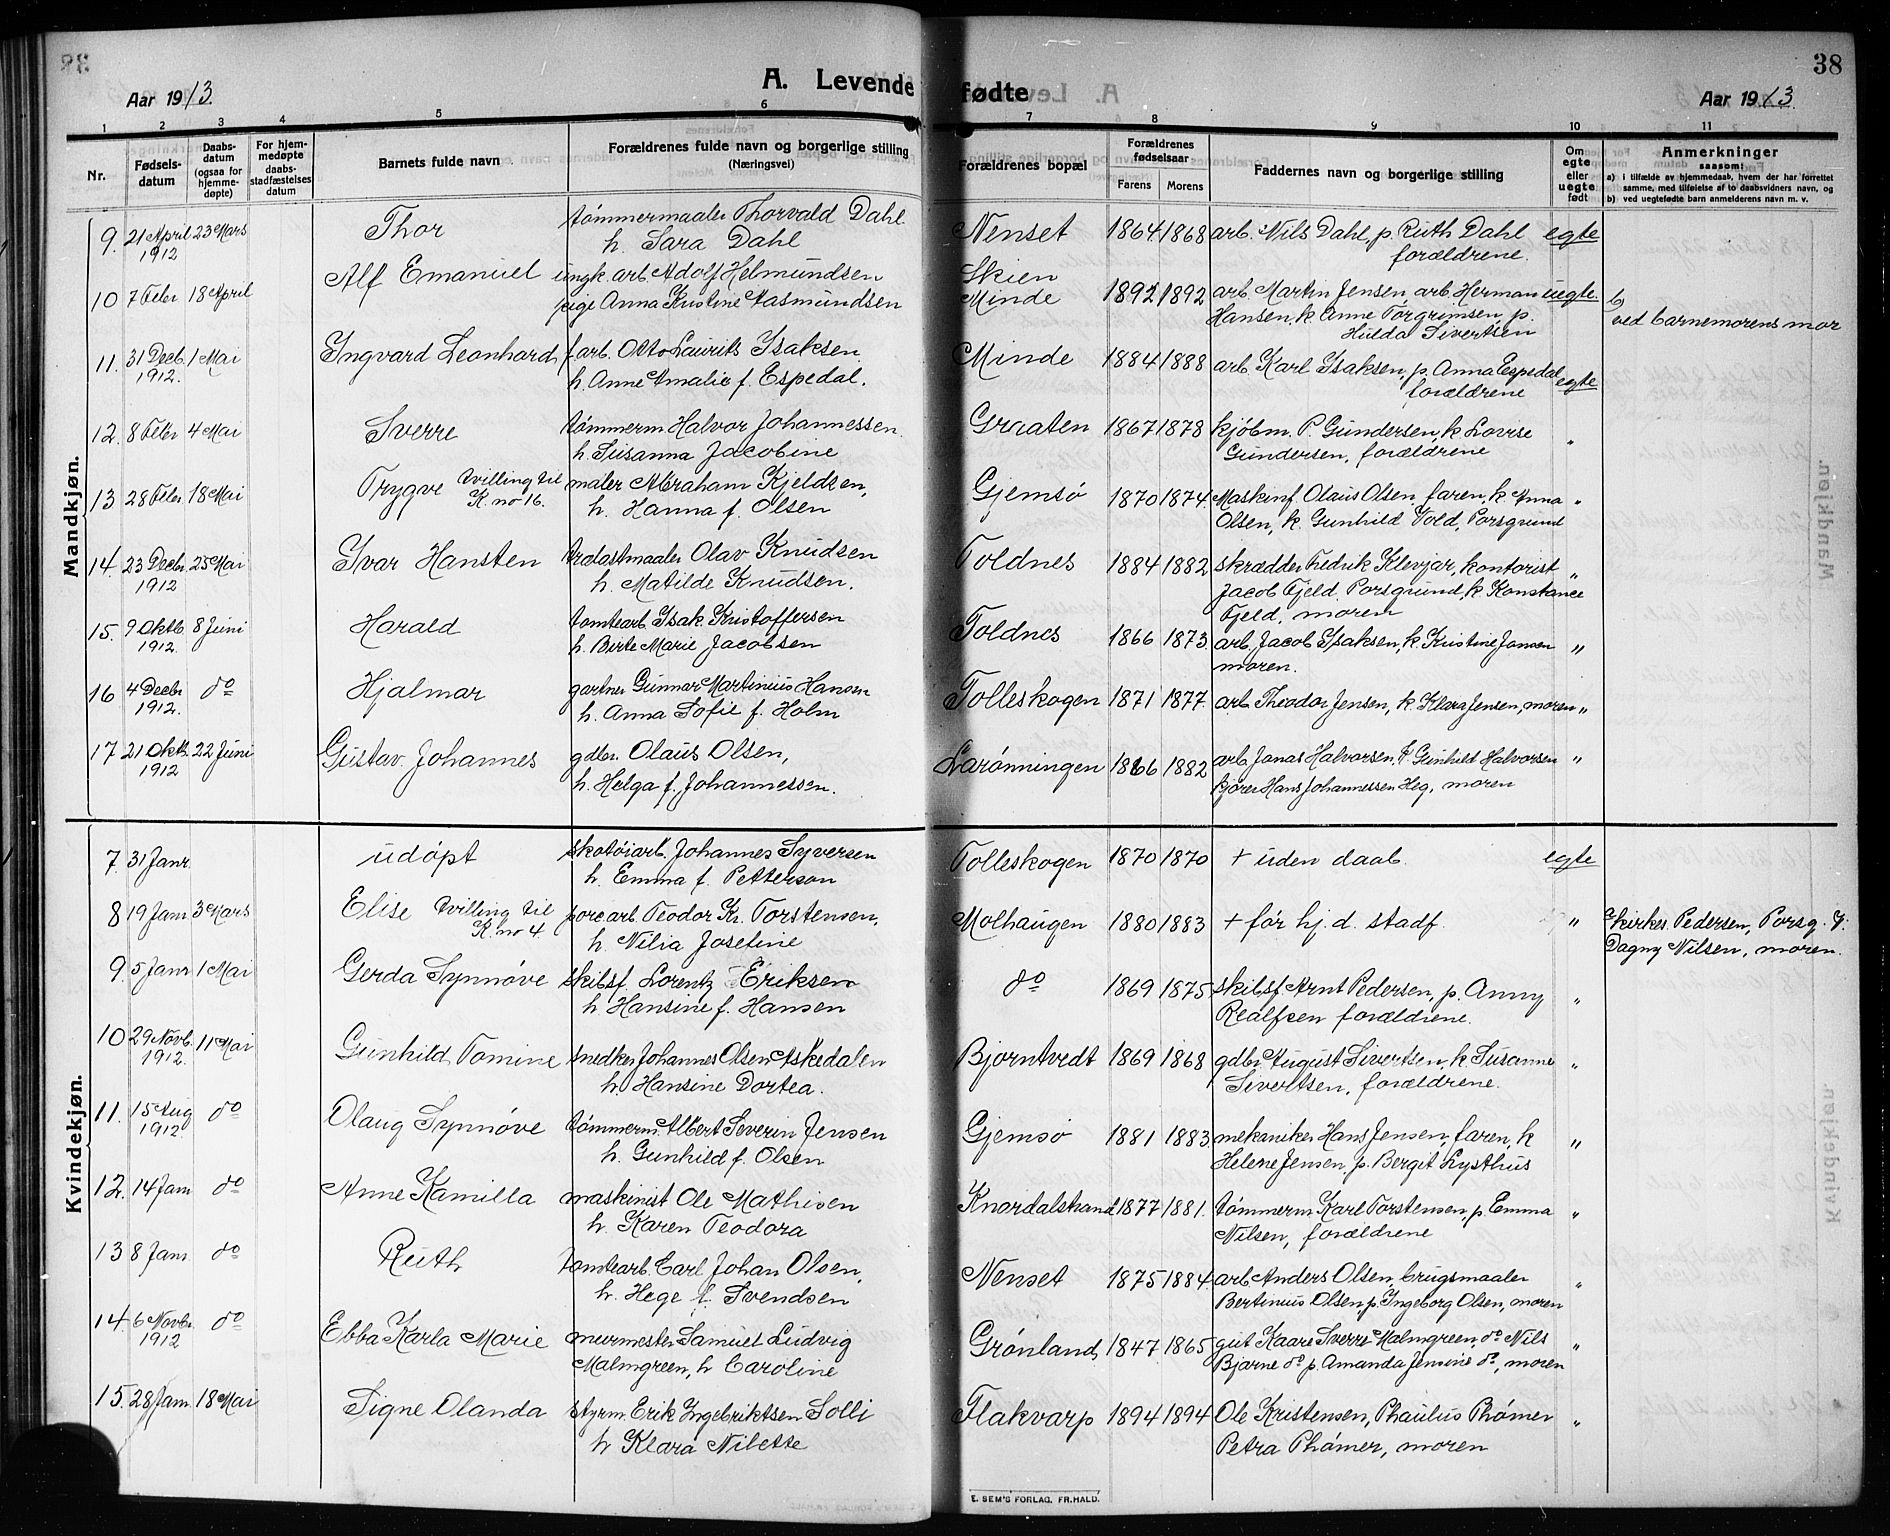 38
Aar 1913.
A. Levende fødte
Aar 1913.
1 2 3 4 5 6 7 8 9 10 11
Nr.
Fødsels-
datum
Daabs-
datum
(ogsaa for
hjemme-
døpte)
For hjem-
medøpte
daabs-
stadfæstelses
datum
Barnets fulde navn
Forældrenes fulde navn og borgerlige stilling
(Næringsvei)
Forældrenes bopæl
Forældrenes
fødselsaar
Farens Morens
Faddernes navn og borgerlige stilling
Om
egte
eller
uegte
født
Anmerkninger
saasom:
a) i tilfælde av hjemmedaab, hvem der har forrettet
samme, med tilføielse af to daabsvidners navn, og
b) ved uegtefødte barn anmelderens navn m. v.
Mandkjøn.
9. 21 April 23 Mars Thor tømmermaaler Thorvald Dahl Nenset 1864 1868 arb. Nils Dahl, p. Ruth Dahl egte
1912 h. Sara Dahl forældrene.
10 7 Febr 18 April Alf Emanuel ungk. arb. Adolf Helmundsen Skien 1892 1892 arb. Martin Jensen, arb. Herman uegte. b)
pige Anna Kristine Aasmundsen Minde Hansen, k. Anne Torgrimsen, p. ved barnemorens mor
Hulda Sivertsen
11. 31 Decb. 1 Mai Ingvard Leonhard f.arb. Otto Laurits Isaksen Minde 1884 1888 arb. Karl Isaksen, p. Anna Espedal egte
1912. h. Anne Amalie f. Espedal. forældrene
12. 8 Febr 4 Mai Sverre tømmerm. Halvor Johannessen Graaten 1867 1878 kjøbm. P. Gundersen, k. Lovise "
h. Susanna Jacobine Gundersen, forældrene
13 28 Febr 18 Mai Trygve tvilling til maler Abraham Kjeldsen, Gjemsø 1870 1874 Maskinf. Olaus Olsen, faren, k. Anna "
K. no 16. h. Hanna f. Olsen Olsen, k. Gunhild Vold, Porsgrund
14. 23 Decbr 25 Mai Ivar Hansten trælastmaaler Olav Knudsen Toldnes 1884 1882 skrædder Fredrik Klevjar, kontorist "
1912 h. Matilde Knudsen. Jacob Fjeld, Porsgrund, k. Konstance
Fjeld, moren
15. 9 Oktb. 8 Juni Harald tomtearb. Isak Kristoffersen Toldnes 1866 1873 arb. Jacob Isaksen, k. Kristine Jansen "
1912. h. Birte Marie Jacobsen moren.
16 4 Decbr do Hjalmar gartner Gunnar Martinius Hansen Tolleskogen 1871 1877 arb. Theodor Jensen, k. Klara Jensen, moren "
1912. h. Anna Sofie f. Holm
17 21 Oktb. 22 Juni Gustav Johannes gdbr. Olaus Olsen, Larønningen 1866 1882 arb. Jonas Halvorsen, k Gunhild Halvorsen "
1912 h. Helga f. Johannessen. kjører Hans Johannessen Heg, moren
Kvindekjøn.
7. 31 Janr. udøpt skotøiarb. Johannes Syversen Tolleskogen 1870 1870 + uden daab. egte
h. Emma f. Petterson
8 19 Janr 3 Mars Elise tvilling til porc.arb. Teodor Kr. Torstensen, Molhaugen 1880 1883 + før hj. d. stadf. " Kirkes. Pedersen, Porsg. J.
K. no 4. h. Nilia Josefine Dagny Nilsen, moren.
9. 5 Janr 1 Mai Gerda Synnøve skibsf. Lorentz Eriksen do 1869 1875 skibsf. Arnt Pedersen, p. Anny "
h. Hansine f. Hansen Realfsen forældrene.
10 29 Novb. 11 Mai Gunhild Tomine snedker Johannes Olsen Askedalen Bjørntvedt 1869 1868 gdbr. August Sivertsen, k. Susanne "
1912. h. Hansine Dortea. Sivertsen, forældrene.
11. 15 Aug do Olaug Synnøve tømmerm. Albert Severin Jensen Gjemsø 1881 1883 mekaniker Hans Jensen, faren, k "
1912. h. Gunhild f. Olsen Helene Jensen, p. Bergit Lysthus
12. 14 Janr do Anne Kamilla maskinist Ole Mathisen Knardalstrand 1877 1881. tømmerm. Karl Torstensen, p. Emma "
h. Karen Teodora Nilsen, forældrene
13 8 Janr do Ruth tomtearb. Carl Johan Olsen, Nenset 1875 1884. arb. Anders Olsen, brugsmaaler "
h. Hege f. Svendsen Bertinius Olsen, p. Ingeborg Olsen, moren
14. 6 Novbr do Ebba Karla Marie murmester Samuel Ludvig Grønland 1847 1865 gut Kaare Sverre Malmgreen, do Nils "
1912 Malmgreen, h Caroline Bjarne do p. Amanda Jensine do, moren
15. 28 Janr 18 Mai Signe Olanda styrm. Erik Ingebriktsen Solli Flakvarp 1894 1894 Ole Kristensen, Phaulus Phømer "
h Klara Nilette Petra Phømer, moren
E. SEM'S FORLAG, FR.HALD.